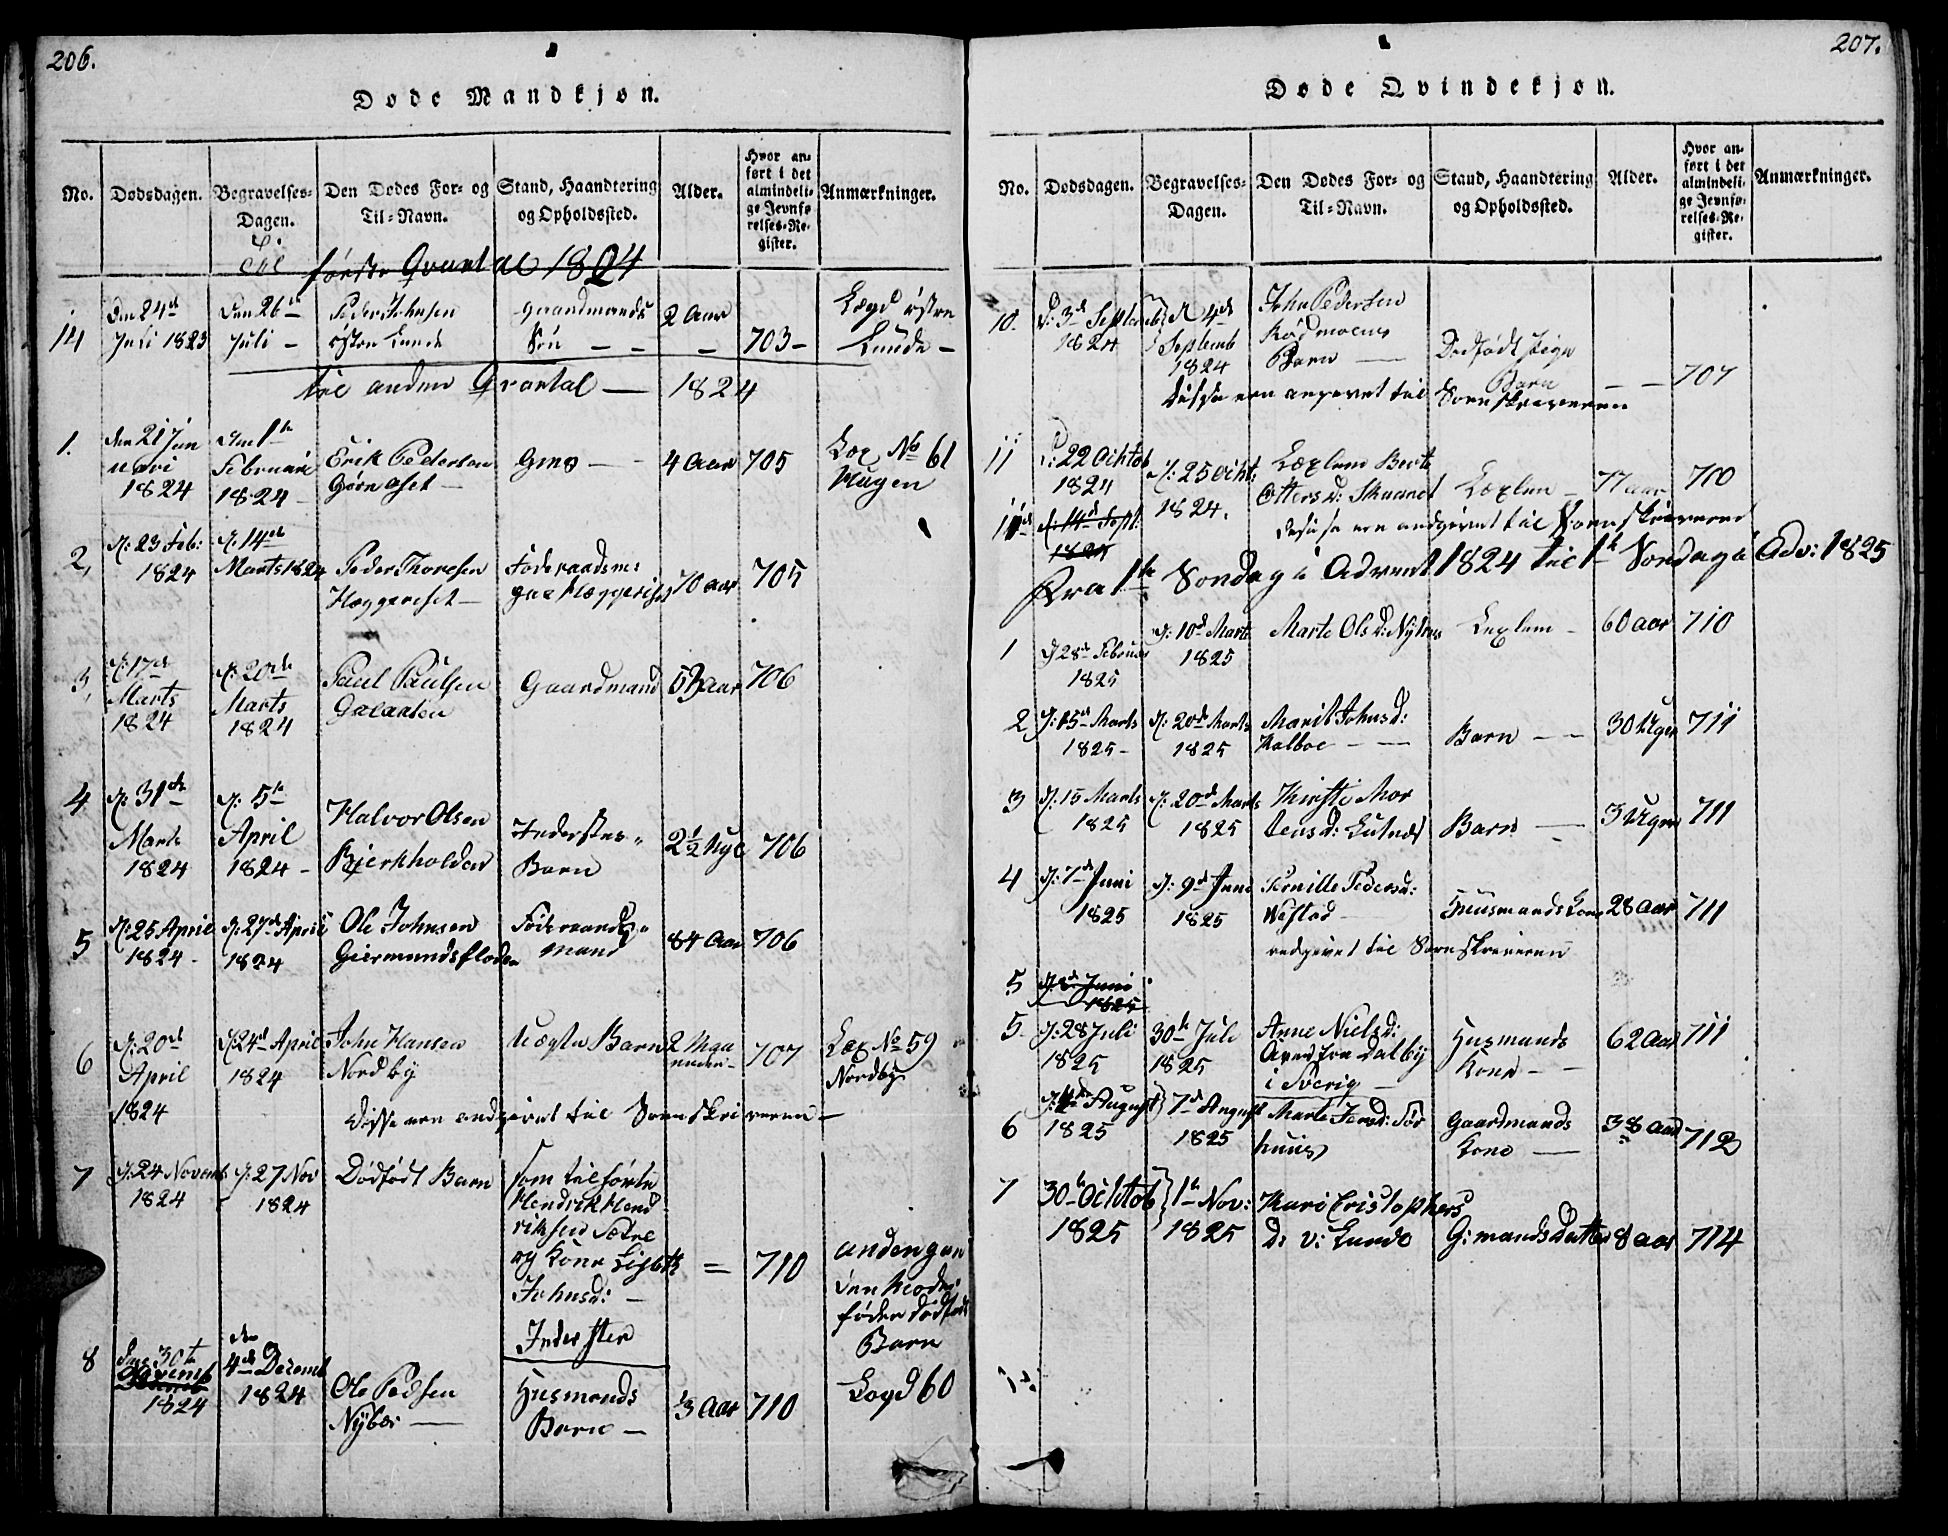 206.
Døde Mandkjøn.
No. Dødsdagen. Begravelses-Dagen. Den Dødes For- og Til-Navn. Stand, Haandtering og Opholdssted. Alder. Hvor anført i det almindelige Jevnførelses-Register. Anmærkninger.
Til første Qvartal 1824
14 Den 24de Juli 1823 Den 26de Juli - Peder Johnsen østre Lunde Gaardmands Søn 2 Aar 703 - Lægd østre Lunde -
til andre Qvartal 1824
1. den 21 Januari 1824 Den 1te Februari 1824 - Erik Pedersen 4 Aar 705 Læg No 61
2, d: 23 Feb: 1824 d: 14de Marts 1824 Peder Thoresen Hæggeriset - 70 aar 705
3, d: 17de Marts 1824 d: 20de Marts 1824 Paul Paulsen Galaasen Gaardmand 706
4 d: 31te Marts 1824 d: 5te April 1824 - Halvor Olsen Bjerkholden Inderstes Barn 2½ 706
5 d: 25 April 1824 - d: 27de April 1824 Ole Johnsen Geirmundsfloden Føderaads mand 84 Aar 706
6 d: 20de April 1824 d: 24de April 1824 John Hansen Nordby Uægte Barn 2 Maaneder - 707 Læg No 59 Nordby
Disse ere andgivet til Sorenskriveren -
7 d: 24 Novemb 1824 d: 27 Nov 1824 Dødfødt Barn som tilhørte Hendrik Hendriksen Sætre og Kone Lisbeth Johnsd: - Inderster = 710 anden gang den Moder føder dødfødt Barn
8 Den 30te Novemb 1824 den 4de Decemb 1824 Ole Pedsen Nyber Husmands Barn - ⅓ Aar 710 Logd 60
207.
Døde Qvindekjøn.
No. Dødsdagen. Begravelses-Dagen. Den Dødes For- og Til-Navn. Stand, Haandtering og Opholdssted. Alder. Hvor anført i det almindelige Jevnførelses-Register. Anmærkninger.
10. D: 3de Septemb 1824 d 4de Septemb 1824 John Pedersen Rødmoens Barn Dødfødt Pige Barn - - 707
disse ere angivet til Sorenskriveren
11 d: 22 Octob 1824 d: 25 Octb: 1824. Læglem Berte Ottersd: Læglem - 77 aar 710
d: 14de Sept: 1824
disse ere andgivet til Sorenskriveren
Fra 1te Søndag i Advent 1824 til 1te Søndag i Adv: 1825
1 d 28de Februar 1825 d: 10de Marts 1825 Marte Olsd: Læglem - 60 aar 710
2 d: 15de Marts 1825 - d: 20de Marts 1825 Marit Johnsd: Kolboe - Barn - - 30 Uger 711
3 d: 15 Marts 1825 d: 20de Marts 1825 Kirsti Mortensd: Lutnæs Barn - 3 Uger 711
4 d: 7de Juni 1825 d: 9de Juni 1825 Pernille Pedersd: Westad Husmands Kone 28 Aar 711
andgivet til Sorenskriveren
5 d. 8de Juni 1825
5. d: 28 Juli 1825 30te Juli 1825 Anne Nielsd: Dalby i Sverig - Husmands Kone - - 62 Aar 711
6 d: August 1825 7de August 1825 Marte Jensd: Sørhuus Gaardmands Kone - 38 aar 712
7 30te Octob 1825 1te Nov: 1825 Kari Cristophers D: v: Lunde G: mands Datter 8 aar 714